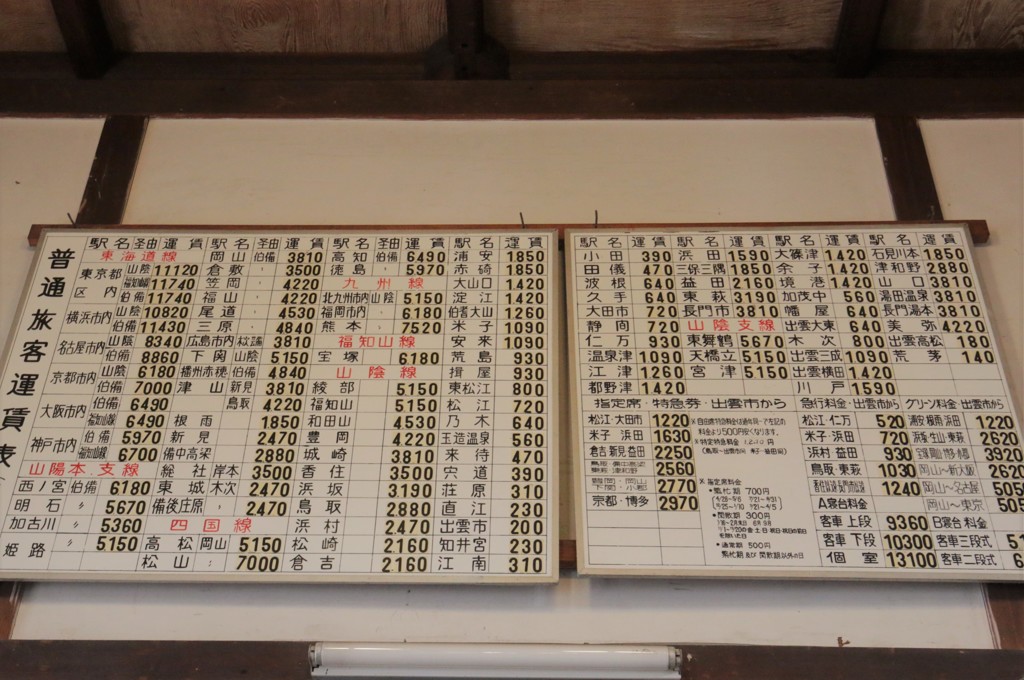 普通旅客運賃表
駅名 圣由 運賃 駅名 圣由 運賃 駅名 圣由 運賃 駅名 運賃
東海道線 岡山 伯備 3810 高知 伯備 6490 浦安 1850
東京都区内 山陰 11120 倉敷 〃 3500 徳島 〃 5970 赤碕 1850
福知山線 11740 笠岡 〃 4220 九州線 大山口 1420
伯備 11740 福山 〃 4220 北九州市内 山陰 5150 淀江 1420
横浜市内 山陰 10820 尾道 〃 4530 福岡市内 〃 6180 伯耆大山 1260
伯備 11430 三原 〃 4840 熊本 〃 7520 米子 1090
名古屋市内 山陰 8340 広島市内 木次芸備 3810 福知山線 安来 1090
伯備 8860 下関 山陰 5150 宝塚 6180 荒島 930
京都市内 山陰 6180 播州赤穂 伯備 4840 山陰線 揖屋 930
伯備 7000 津山 新見 3810 綾部 5150 東松江 800
大阪市内 伯備 6490 鳥取 4220 福知山 5150 松江 720
福知山線 6490 根雨 1850 和田山 4530 乃木 640
神戸市内 伯備 5970 新見 2470 豊岡 4220 玉造温泉 560
福知山線 6700 備中高梁 2880 城崎 3810 来待 470
山陽本・支線 総社 岡本 3500 香住 3500 宍道 390
西ノ宮 伯備 6180 東城 木次 2470 浜坂 3190 荘原 310
明石 〃 5670 備後庄原 〃 2470 鳥取 2880 直江 230
加古川 〃 5360 四国線 浜村 2470 出雲市 200
姫路 〃 5150 高松 岡山 5150 松崎 2160 知井宮 230
松山 〃 7000 倉吉 2160 江南 310
駅名 運賃 駅名 運賃 駅名 運賃 駅名 運賃
小田 390 浜田 1590 大篠津 1420 石見川本 1850
田儀 470 三保三隅 1850 余子 1420 津和野 2880
波根 640 益田 2160 境港 1420 山口 3810
久手 640 東萩 3190 加茂中 560 湯田温泉 3810
大田市 720 長門市 3810 幡屋 640 長門湯本 3810
静間 720 山陰支線 出雲大東 640 美弥 4220
仁万 930 東舞鶴 5670 木次 800 出雲高松 180
温泉津 1090 天橋立 5150 出雲三成 1090 荒茅 140
江津 1260 宮津 5150 出雲横田 1420
都野津 1420 川戸 1590
指定席・特急券・出雲市から 急行料金・出雲市から グリーン料金・出雲市から
松江・大田市 1220 松江・仁万 520
米子 浜田 1630 米子・浜田 720
倉吉 新見 益田 2250 浜村 益田 930
2560 鳥取・東萩 1030 岡山〜新大阪
2770 1240 岡山〜名古屋
京都・博多 2970 A寝台料金 岡山〜東京
客車 上段 9360 B寝台料金
客車 下段 10300 客車三段式
個室 13100 客車二段式
※指定席料金
・繁忙期 700円
・閑散期 300円
・通常期 500円
繁忙期及び閑散期以外の日